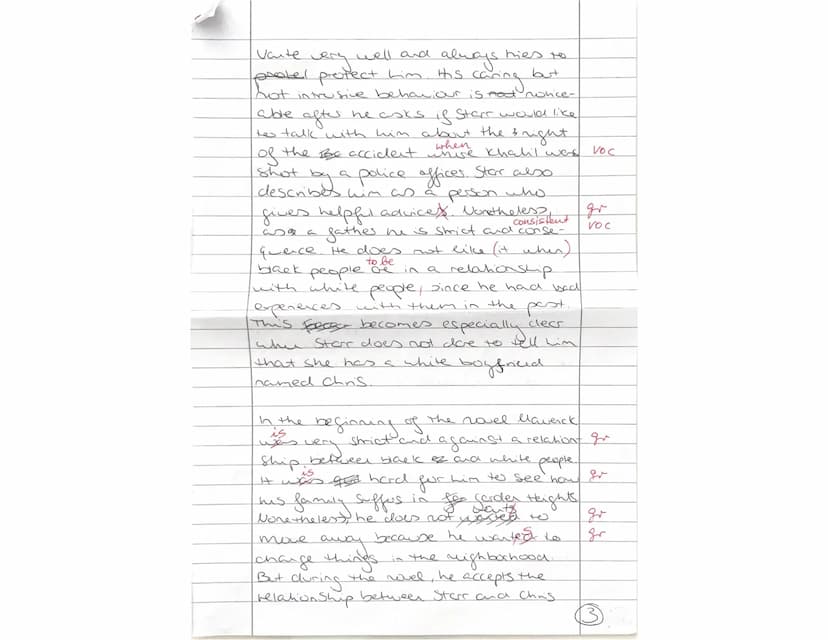 very well and always tries to
protect him. His caring but
not intrusive behaviour is not notice-
able after he asks if Starr would like
to talk with him about the night
of the accident when Khalil was voc
shot by a police officer. Star also
describes him as a person who
gives helpful advices. Nonetheless, gr
consistent
as a father he is strict and conse- voc
quence. He does not like (it when)
to be
black people be in a relationship
with white people, since he had bad
experiences with them in the past.
This becomes especially clear
when Starr does not dare to tell him
that she has a white boyfriend
named Chris.
In the beginning of the novel Maverick
is
was very strict and against a relation- gr
ship between black and white people.
is
It was hard for him to see how gr
his family suffers in Garden Heights.
Nonetheless, he does not wants to gr
move away because he wanted to gr
change things in the neighborhood.
But during the novel, he accepts the
relationship between Starr and Chris
3